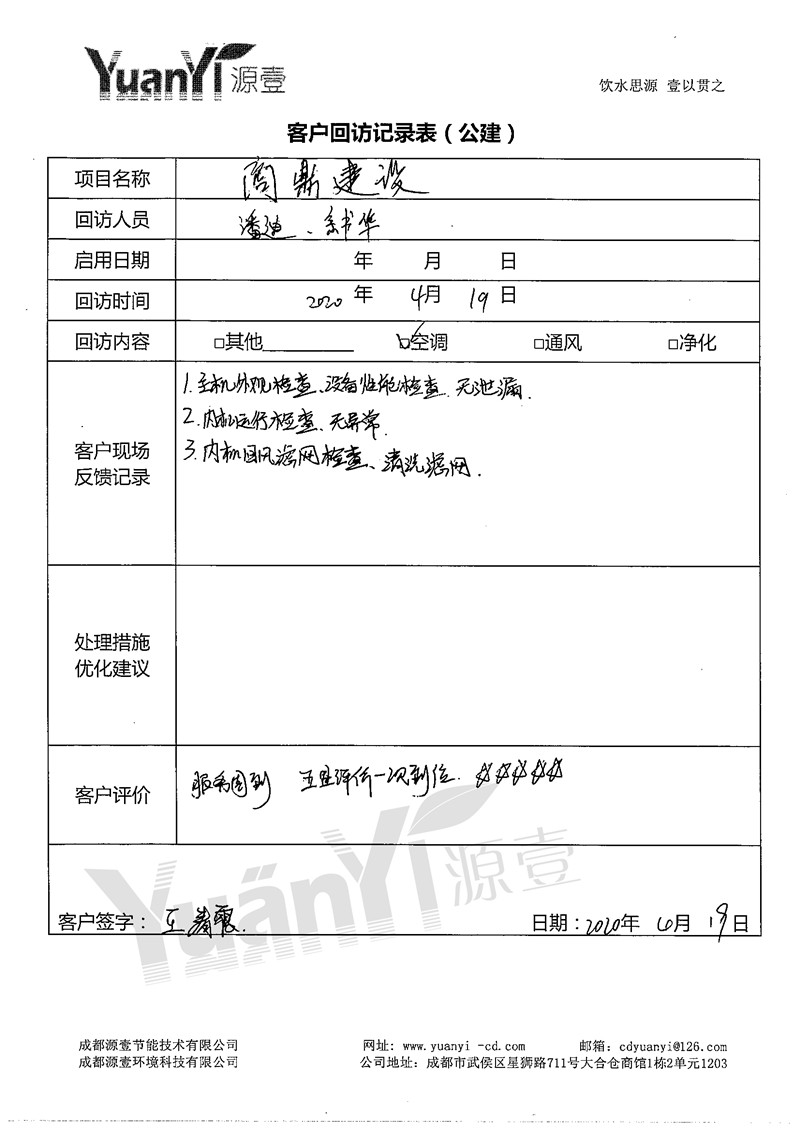 YuanYi 源壹
饮水思源 壹以贯之
客户回访记录表（公建）
项目名称 阔鼎建设
回访人员 潘迪、
启用日期 年 月 日
回访时间 2020年 4月 19日
回访内容 □其他 ☑空调 □通风 □净化
客户现场
反馈记录
1.主机外观检查、设备性能检查、无泄漏.
2.内机运行检查、无异常.
3.内机回风滤网检查、清洗滤网.
处理措施
优化建议
客户评价 服务周到 五星评价一次到位. ☆☆☆☆☆
YuanYi 源壹
客户签字： 日期：2020年 月 19日
成都源壹节能技术有限公司 网址: www.yuanyi -cd.com 邮箱: cdyuanyi@126.com
成都源壹环境科技有限公司 公司地址: 成都市武侯区星狮路711号大合仓商馆1栋2单元1203